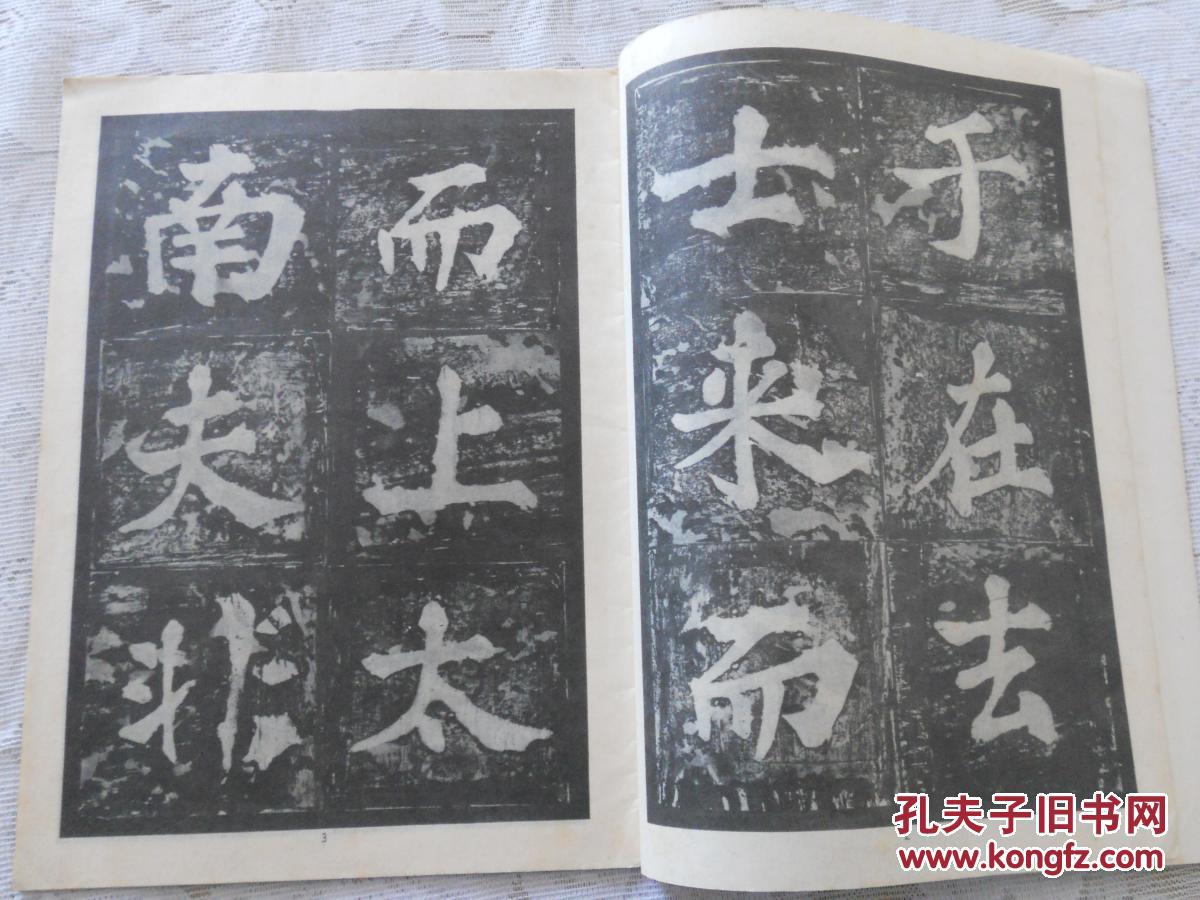 于在去
士来而
而上太
南夫非
3
2
孔夫子旧书网
www.kongfz.com